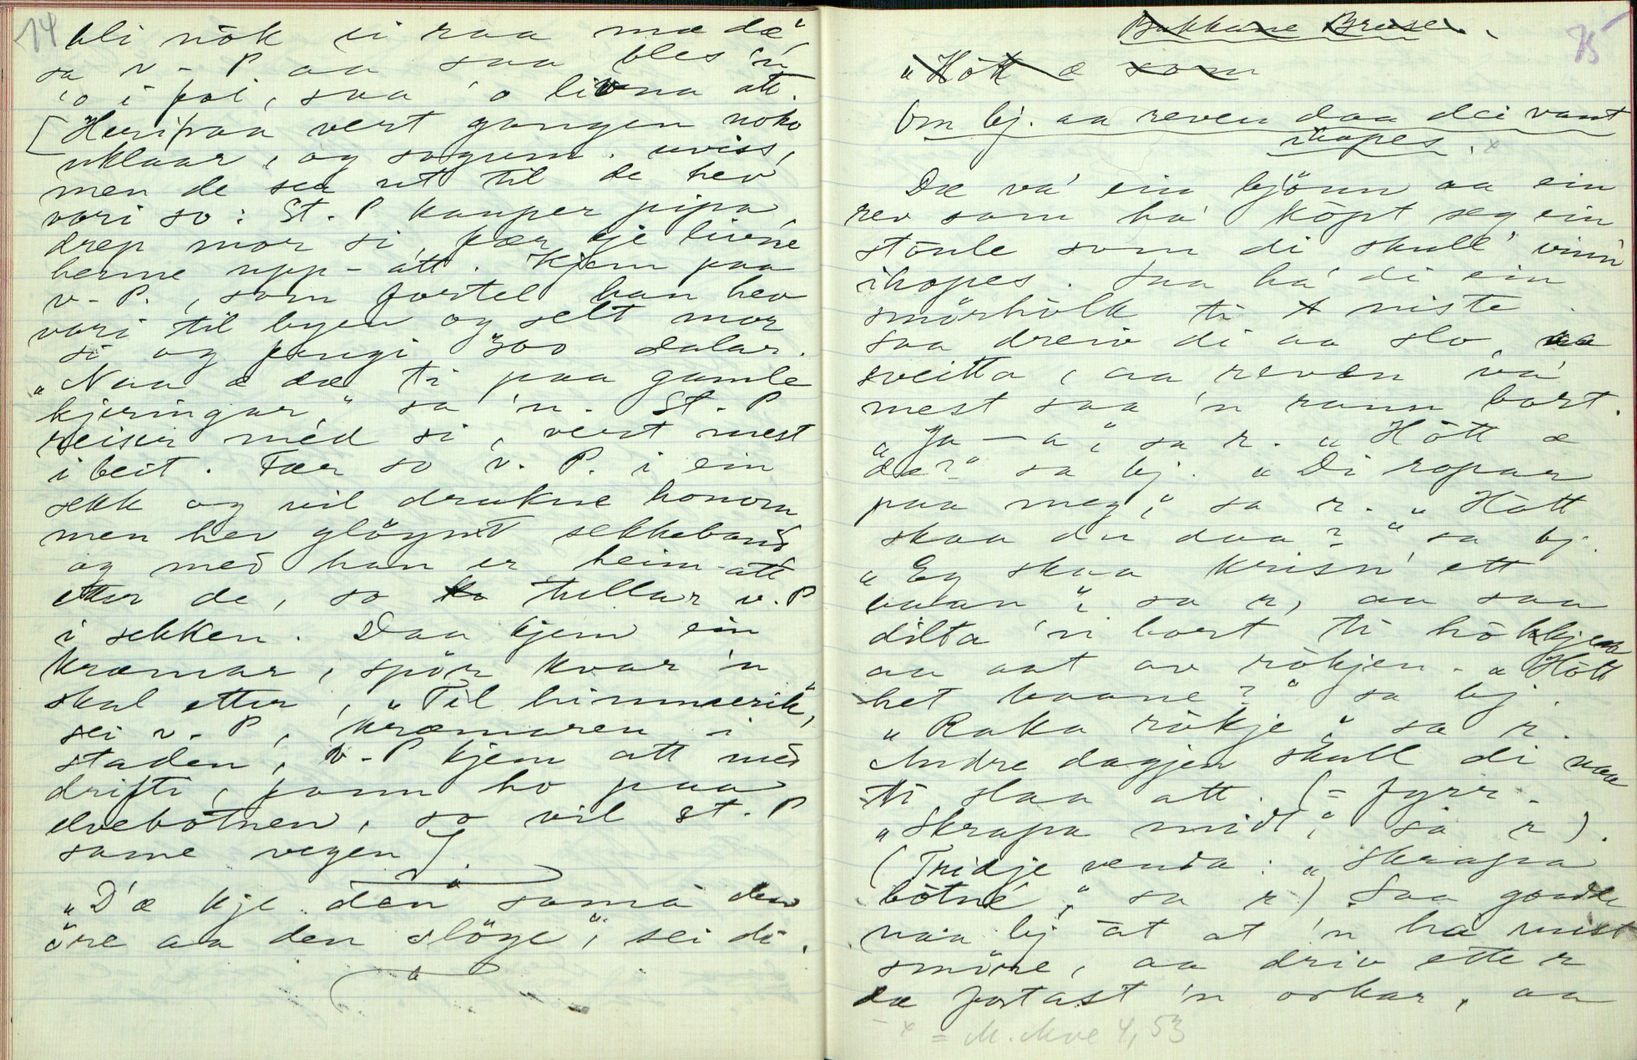 14
bli nök ti raa mæ dæ"
sa v - P aa saa bles 'n
'o i poi, saa 'o livna att.
[Herifraa vert gangen noko
uklaar, og sogum. uviss,
men de ser ut til de hev
vori so: St. P kauper pipa
drep mor si, fær kje livne
henne upp-att. Kjem paa
v-P., som fortel han hev
vori til byen og selt mor
si og fengi 300 dalar.
"Naa æ dæ ti paa gamle
kjeringar," sa 'n. St. P
reiser med si, vert mest
i beit. Fær so v. P. i ein
sekk og vil drukne honom
men hev glöymt sekkeband
og med han er heim-att
etter de, so tullar v. P
i sekken. Daa kjem ein
kræmar, spör kvar 'n
skal etter, "Til himmerik",
sei v-P, kræmaren i
staden, v-P kjem att med
drifti, fann ho paa
elvebotnen, so vil St. P
same vegen].
"D'æ kje den sama den
öre aa den slöge", sei di.
15
Bukkane Bruse.
"Hött æ som
Om bj. aa reven daa dei vant
ihopes. x
Dæ va' ein bjönn aa ein
rev som ha' köpt seg ein
stöule som di skull' vinn'
ihopes. Saa ha' di ein
smörhölk ti niste.
Saa dreiv di aa slo, aa
sveitta, aa reven va'
mest saa 'n rann bort.
"Ja-a", sa r. "Hött æ
dæ?" sa bj. "Di ropar
paa meg", sa r. "Hött
skaa du daa?" sa bj.
"Eg skaa krisn' ett
baan", sa r, aa saa
dilta 'n bort ti hölkjen
aa aat av rökjen. "Hött
het baane?" sa bj.
"Raka rökje", sa r.
Andre dagjen skull di naa
ti slaa att. (= fyrr.
"Skrapa midt", sa r).
(Tridje venda: "Skrapa
botne", sa r). Saa goadde
naa bj åt at 'n ha mist
smöre, aa driv ette r
dæ fortast 'n orkar, aa
x = M. Moe 4, 53